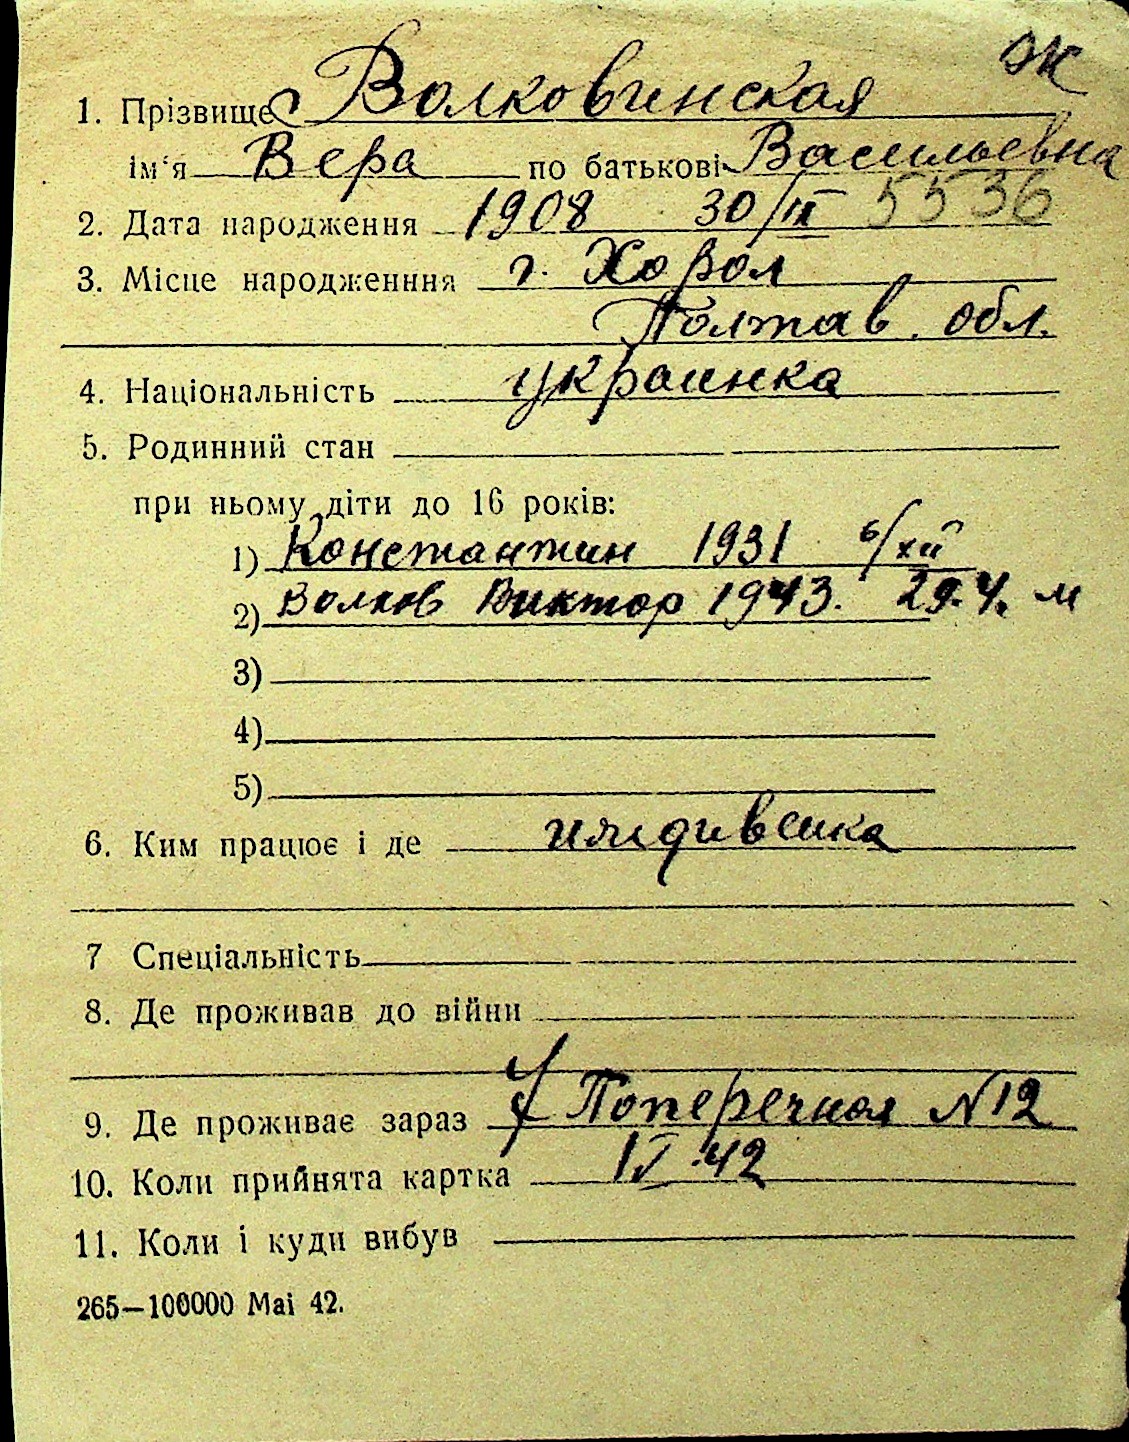 ж
1. Прізвище Волковинская
ім'я Вера по батькові Васильевна
2. Дата народження 1908 30/IX 5536
3. Місце народженння г. Хорол
Полтав. обл.
4. Національність украинка
5. Родинний стан
при ньому діти до 16 років:
1) Константин 1931 6/XII
2) Волков Виктор 1943. 29.4. м
3)
4)
5)
6. Ким працює і де иждивенка
7 Спеціальність
8. Де проживав до війни
9. Де проживає зараз Поперечная N12
10. Коли прийнята картка IV.42
11. Коли і куди вибув
265—100000 Маі 42.